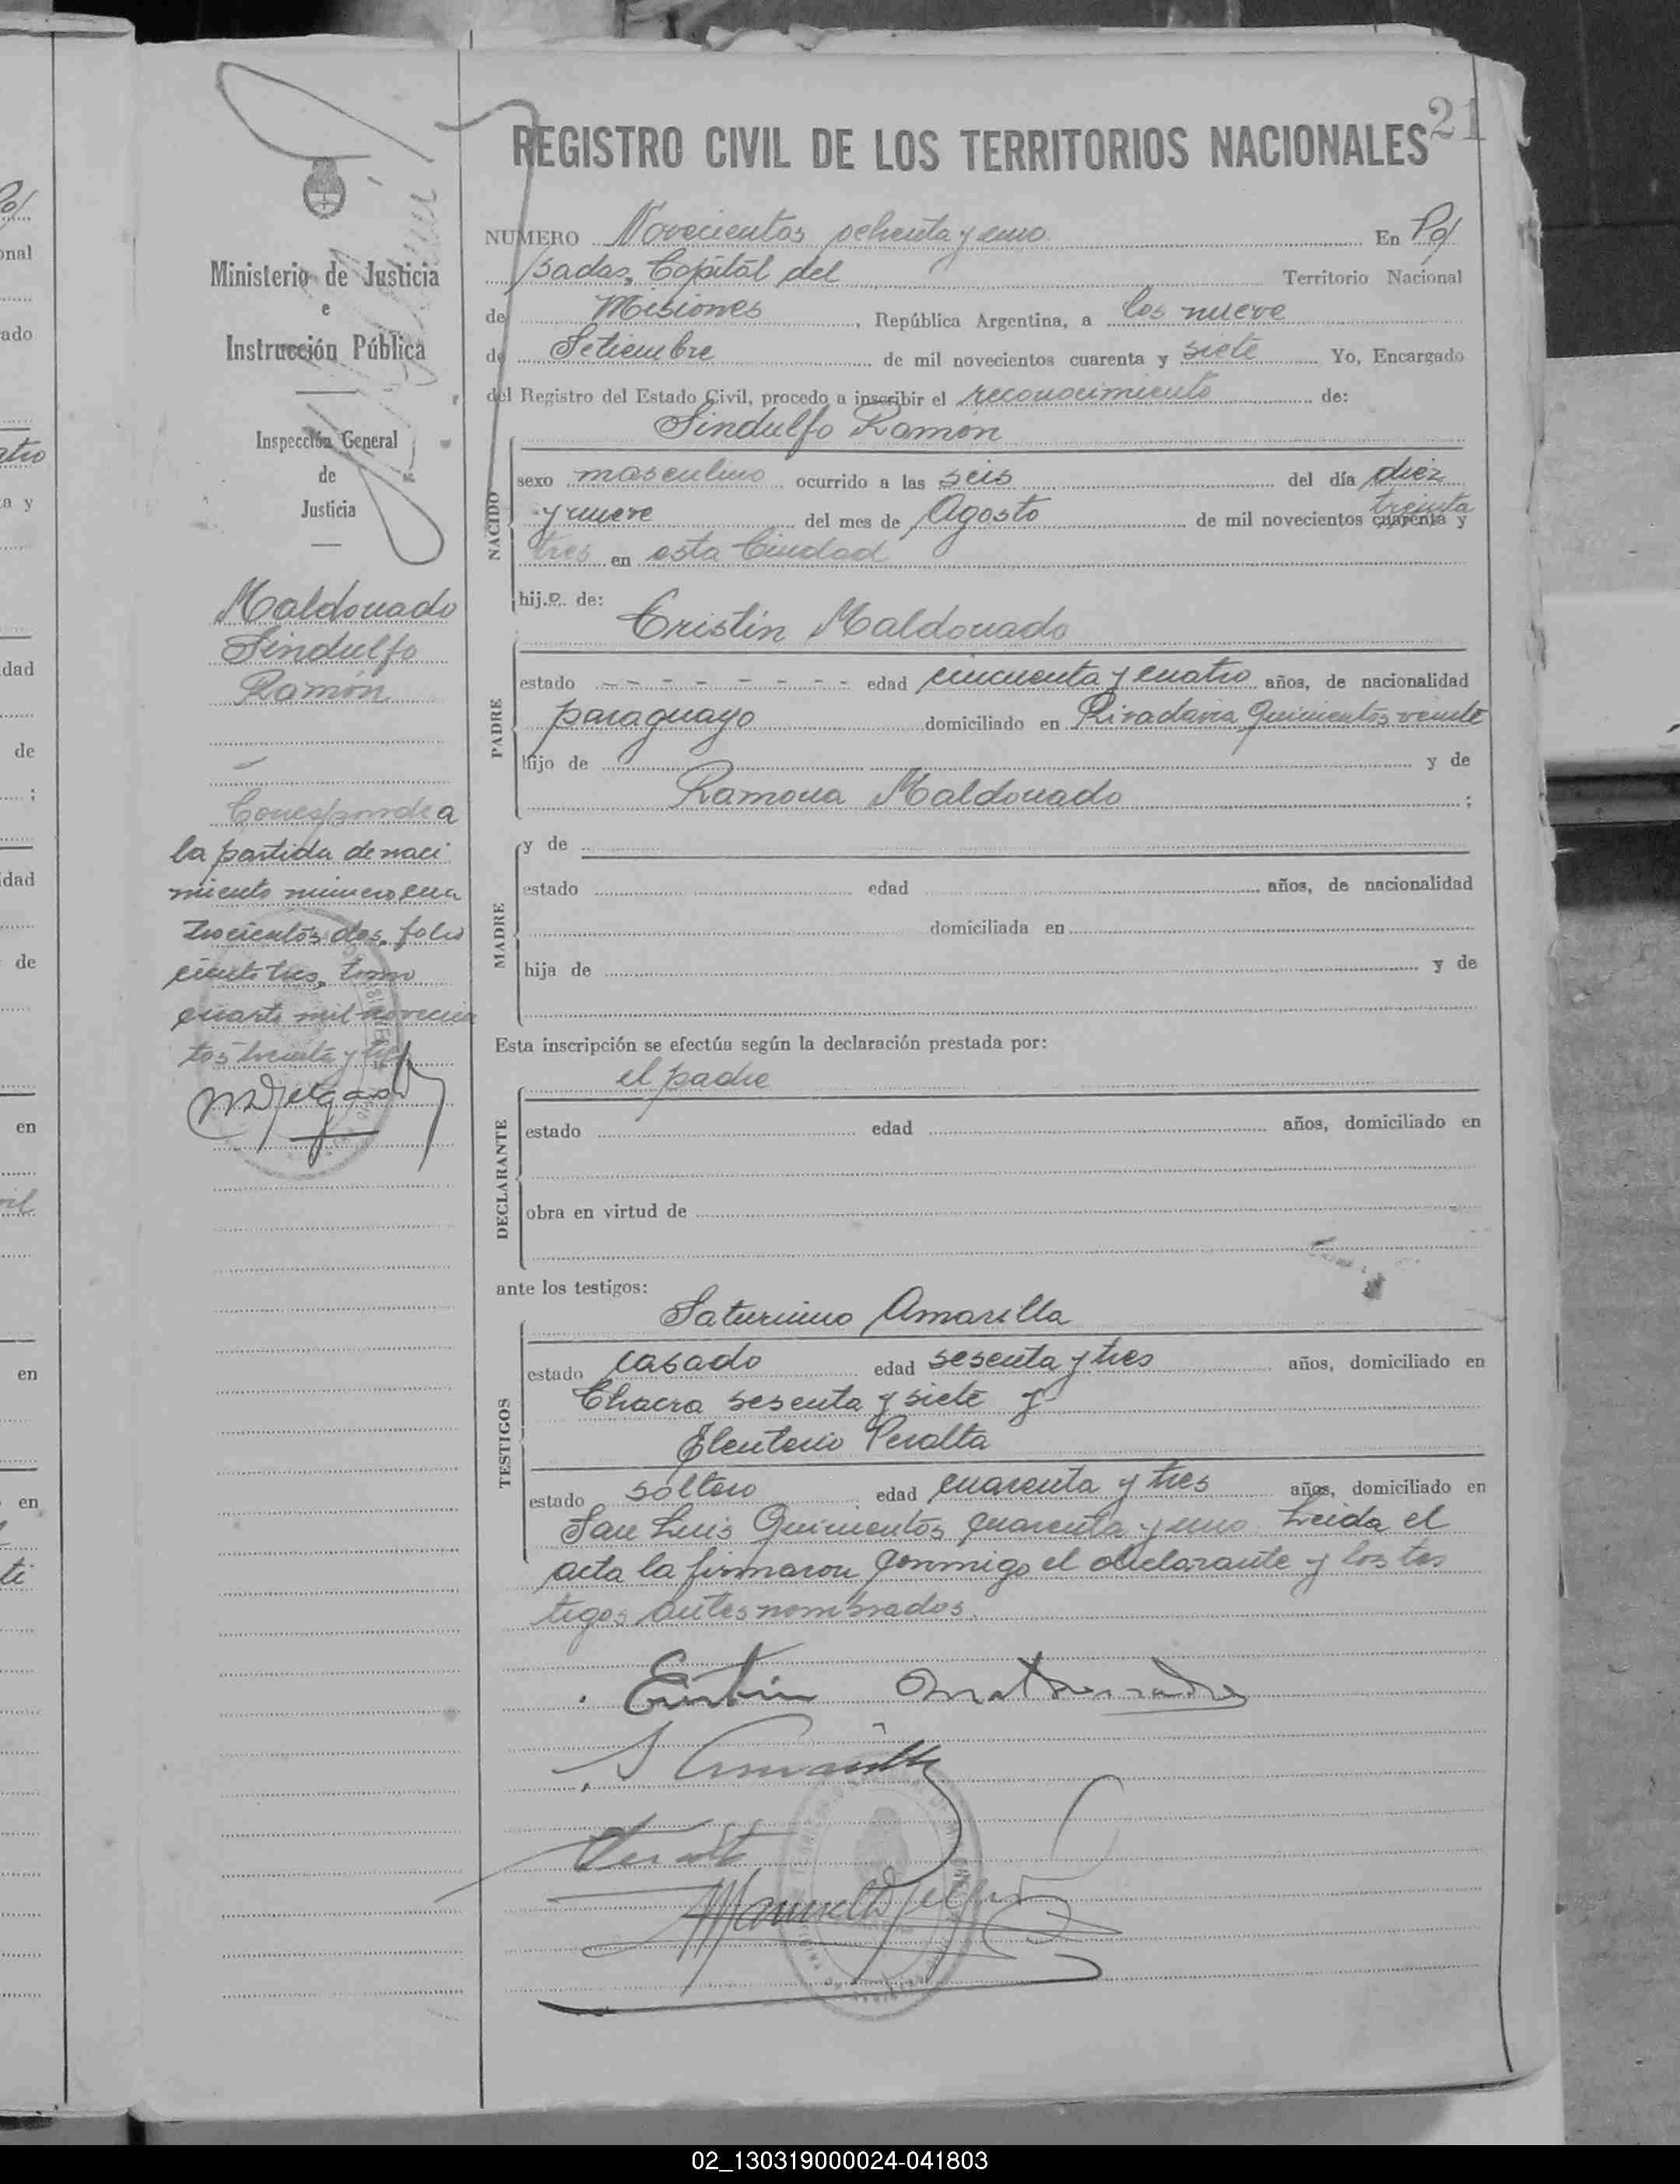 21
REGISTRO CIVIL DE LOS TERRITORIOS NACIONALES
NUMERO Novecientos ochenta y uno En Po/
/sadas, Capitál del Territorio Nacional
de Misiones, República Argentina, a los nueve
de Setiembre de mil novecientos cuarenta y siete Yo, Encargado
del Registro del Estado Civil, procedo a inscribir el reconocimiento de:
Sindulfo Ramón
NACIDO
sexo masculino ocurrido a las seis del día diez
y nueve del mes de Agosto de mil novecientos cuarenta y
treinta
tres en esta Ciudad
hijo de:
Cristin Maldonado
PADRE
estado - - - - - - - edad cincuenta y cuatro años, de nacionalidad
paraguayo domiciliado en Rivadavia Quinientos veinte
hijo de y de
Ramona Maldonado ;
MADRE
y de
estado edad años, de nacionalidad
domiciliada en
hija de y de
Esta inscripción se efectúa según la declaración prestada por:
el padre
DECLARANTE
estado edad años, domiciliado en
obra en virtud de
ante los testigos:
Saturnino Amarilla
TESTIGOS
estado casado edad sesenta y tres años, domiciliado en
Chacra sesenta y siete y
Eleuterio Peralta
estado soltero edad cuarenta y tres años, domiciliado en
San Luis Quinientos cuarenta y uno. Leida el
acta la firmaron conmigo el declarante y los tes
tigos antes nombrados.
Cristin Maldonado
S Amarilla
Peralta
Ministerio de Justicia
e
Instrucción Pública
Inspección General
de
Justicia
Maldonado
Sindulfo
Ramón
Corresponde a
la partida de naci
miento número cua
trocientos dos, folio
ciento tres, tomo
cuarto mil novecien
tos treinta y tres
02_130319000024-041803